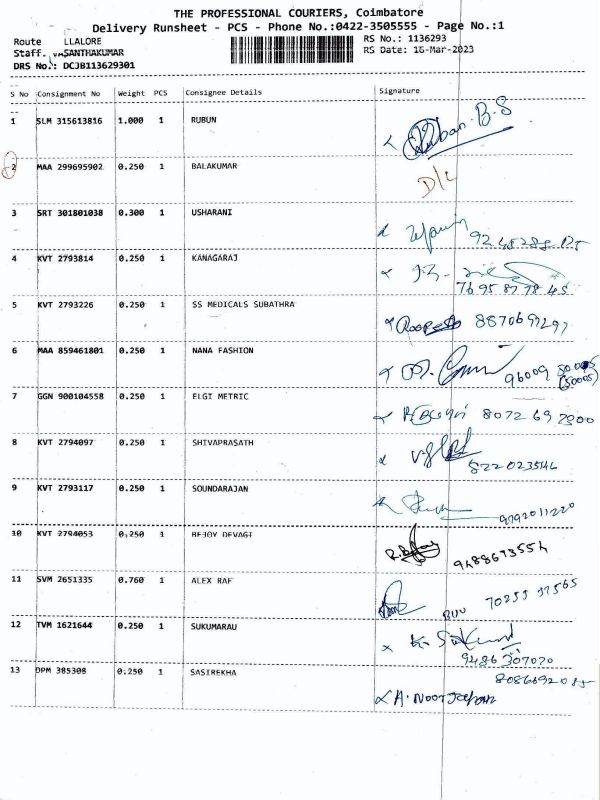 THE PROFESSIONAL COURIERS, Coimbatore
Delivery Runsheet - PCS - Phone No.:0422-3505555 - Page No.:1
Route LLALORE RS No.: 1136293
Staff. SANTHAKUMAR RS Date: 16-Mar-2023
DRS No.: DCJB113629301
S No Consignment No Weight PCS Consignee Details Signature
1 SLM 315613816 1.000 1 RUBUN
Ruban.B.S
2 MAA 299695902 0.250 1 BALAKUMAR
D/L
3 SRT 301801038 0.300 1 USHARANI
4 KVT 2793814 0.250 1 KANAGARAJ
76 95 87 78 45
5 KVT 2793226 0.250 1 SS MEDICALS SUBATHRA
8870697297
6 MAA 859461801 0.250 1 NANA FASHION
96009
(50005)
7 GGN 900104558 0.250 1 ELGI METRIC
8072 69 7800
8 KVT 2794097 0.250 1 SHIVAPRASATH
822 023546
9 KVT 2793117 0.250 1 SOUNDARAJAN
9792011220
10 KVT 2794053 0.250 1 BEJOY DEVAGI
9488673554
11 SVM 2651335 0.760 1 ALEX RAF
70255 37565
12 TVM 1621644 0.250 1 SUKUMARAU
9486 307070
13 DPM 385308 0.250 1 SASIREKHA
A. NOORJAHAN